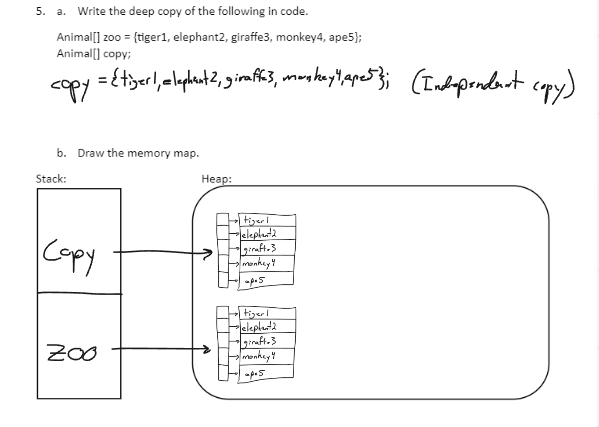 5. a. Write the deep copy of the following in code.
Animal[] zoo = {tiger1, elephant2, giraffe3, monkey4, ape5};
Animal[] copy;
copy = {tiger1, elephant2, giraffe3, monkey4, ape5}; (Independent copy)
b. Draw the memory map.
Stack: Heap:
Copy
tiger1
elephant2
giraffe3
monkey4
ape5
zoo
tiger1
elephant2
giraffe3
monkey4
ape5